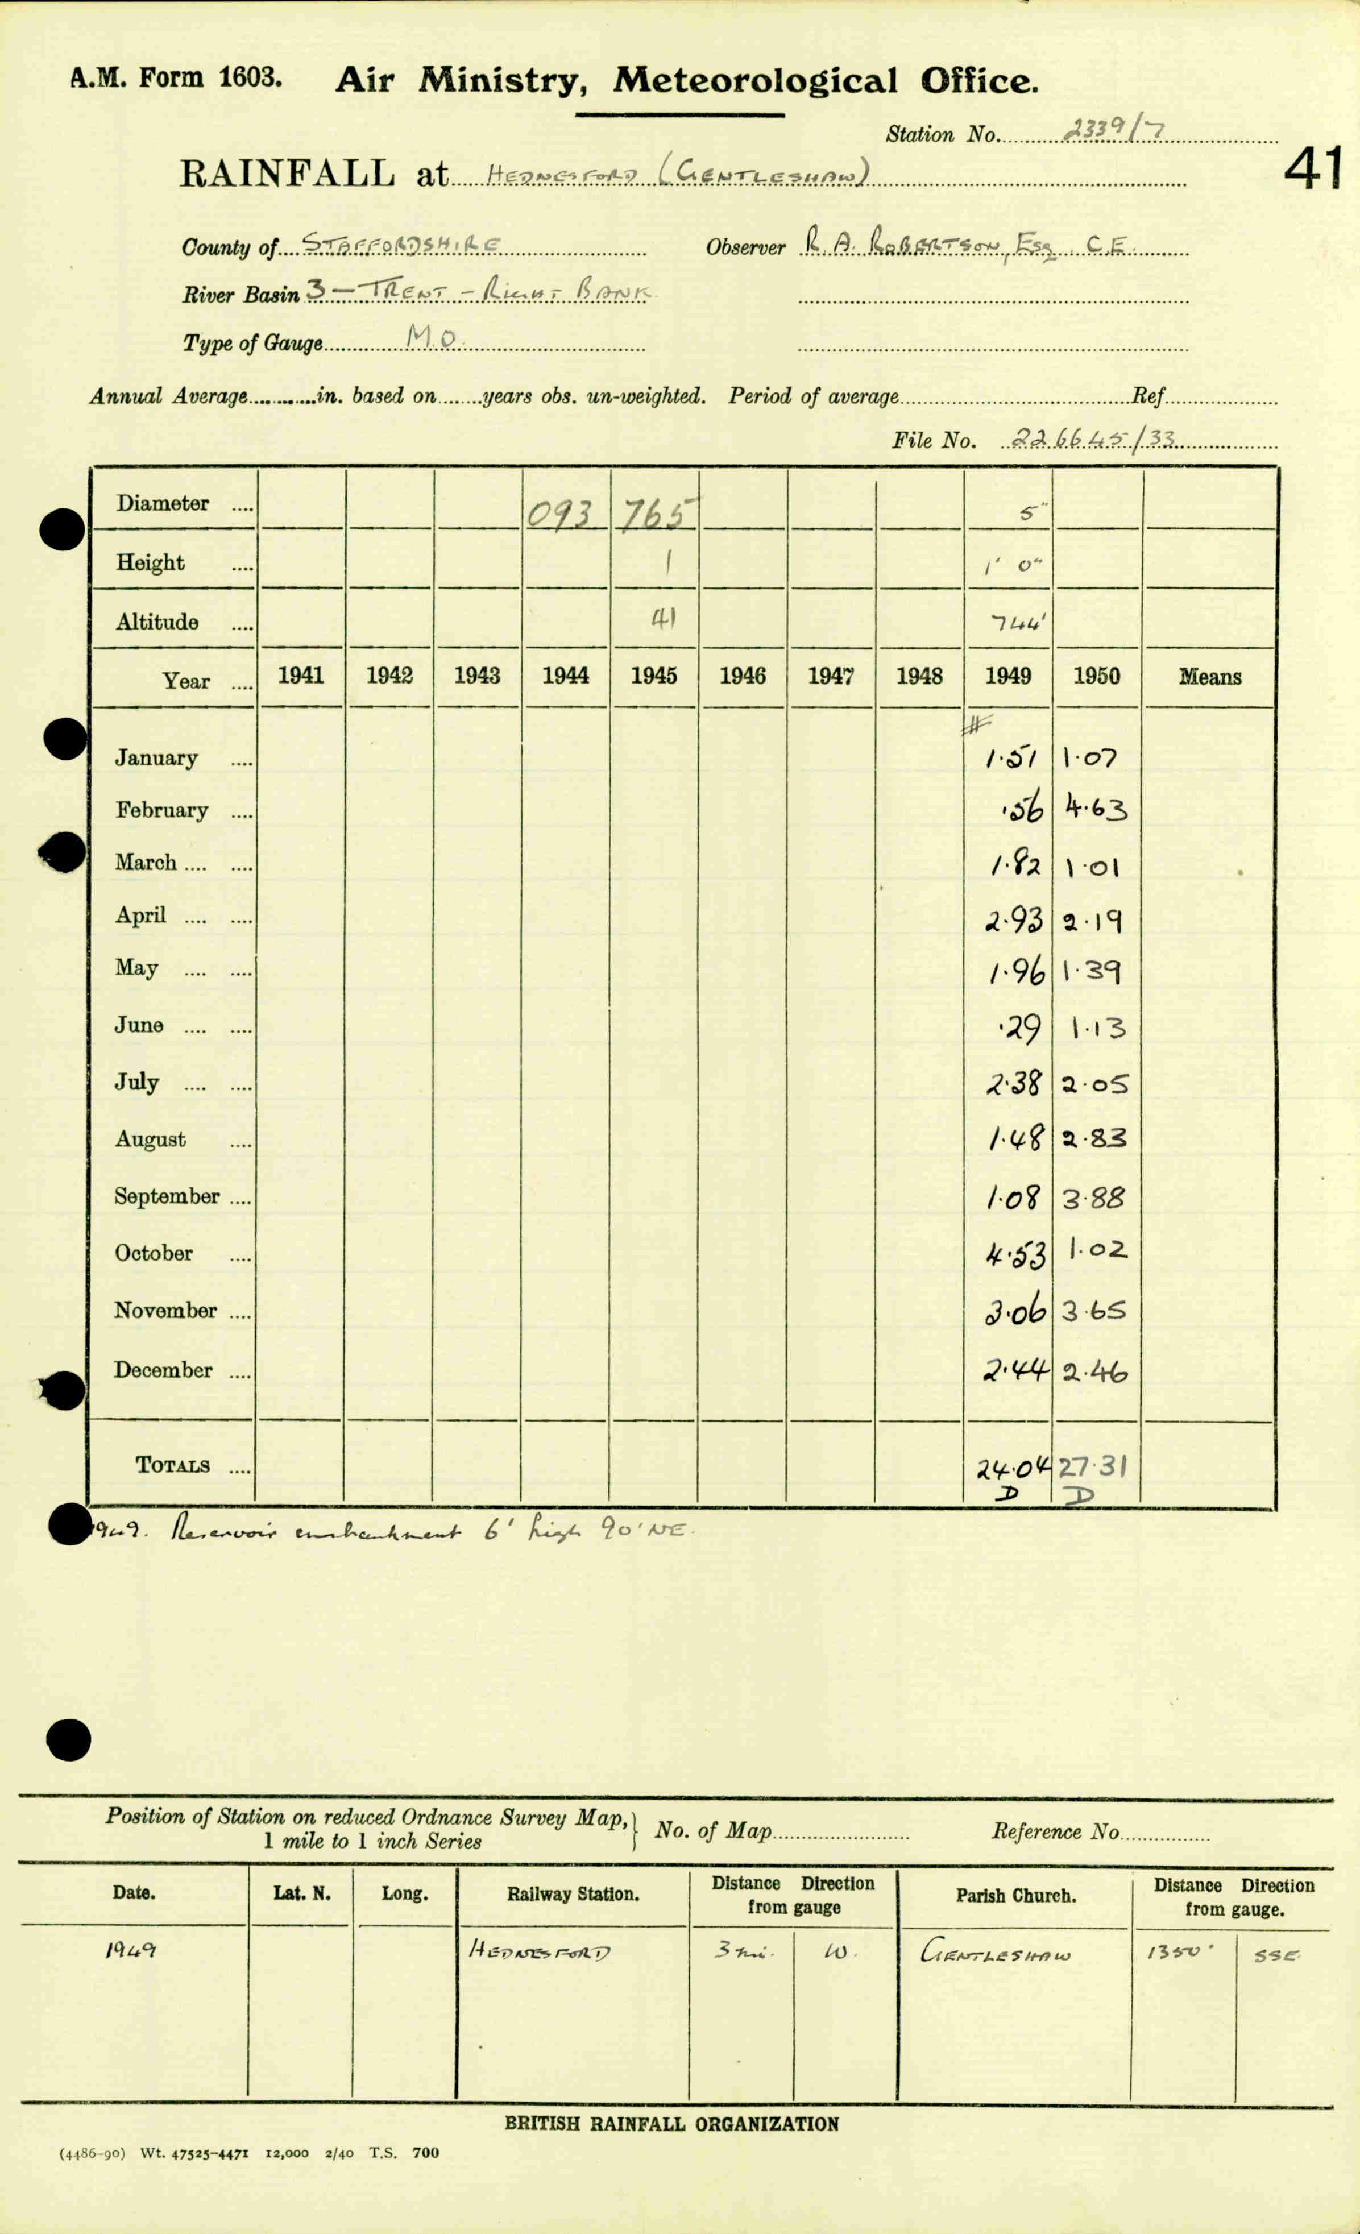 A.M. Form 1603. Air Ministry, Meteorological Office.
Station No. 2339/7
41
RAINFALL at HEDNESFORD (GENTLESHAW)
County of STAFFORDSHIRE Observer R. A. ROBERTSON, Esq., C.E.
River Basin 3 – TRENT – RIGHT BANK
Type of Gauge M.O.
Annual Average in. based on years obs. un-weighted. Period of average Ref
File No. 226645/33
Diameter 093 765 5"
Height 1 1' 0"
Altitude 41 744'
Year 1941 1942 1943 1944 1945 1946 1947 1948 1949 1950 Means
#
January 1·51 1·07
February ·56 4·63
March 1·82 1·01
April 2·93 2·19
May 1·96 1·39
June ·29 1·13
July 2·38 2·05
August 1·48 2·83
September 1·08 3·88
October 4·53 1·02
November 3·06 3·65
December 2·44 2·46
TOTALS 24·04 27·31
D D
1949. Reservoir embankment 6' high 90' NE.
Position of Station on reduced Ordnance Survey Map, 1 mile to 1 inch Series } No. of Map Reference No
Date. Lat. N. Long. Railway Station. Distance Direction from gauge Parish Church. Distance Direction from gauge.
1949 HEDNESFORD 3 mi. W. GENTLESHAW 1350' SSE
BRITISH RAINFALL ORGANIZATION
(4486-90) Wt. 47525-4471 12,000 2/40 T.S. 700